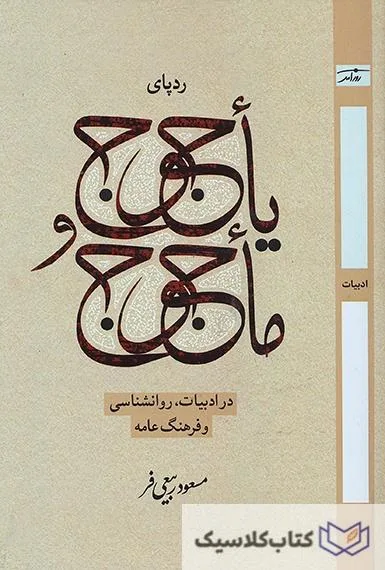 روزآمد
ردپای
یأجوج
و
مأجوج
ادبیات
در ادبیات، روانشناسی
و فرهنگ عامه
مسعود ربیعی فر
کتاب کلاسیک